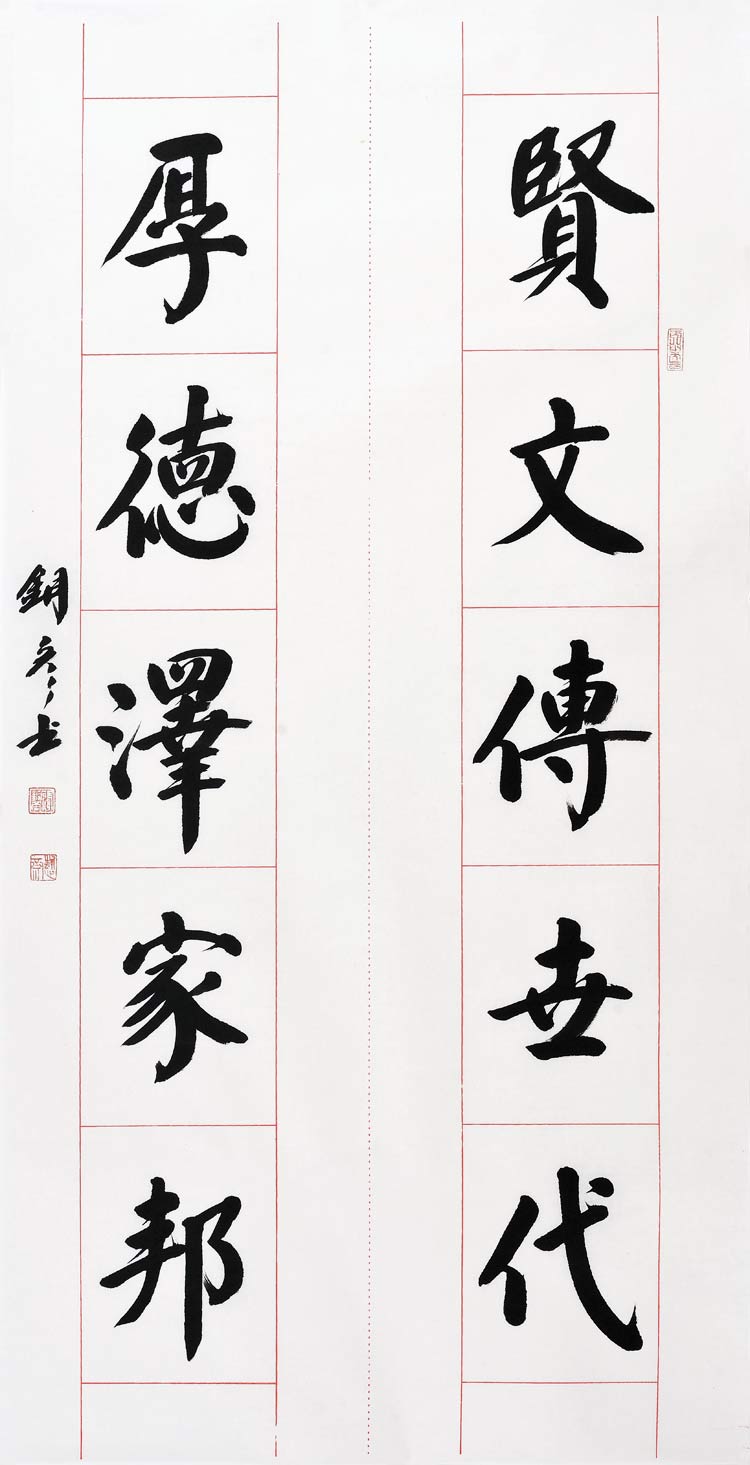 賢文傳世代
厚德澤家邦